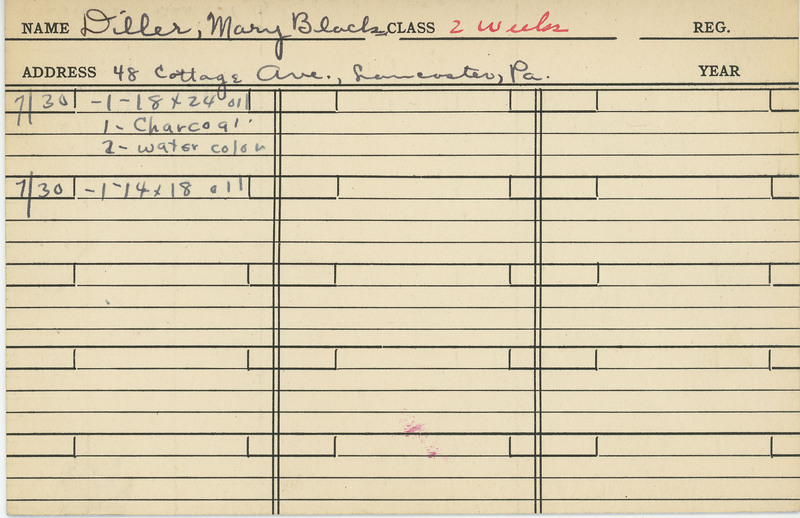 NAME Diller, Mary Black CLASS 2 weeks REG.
ADDRESS 48 Cottage Ave., Lancaster, Pa. YEAR
7/30 -1-18x24 oil
1- Charcoal
2- water color
7/30 -1-14x18 oil